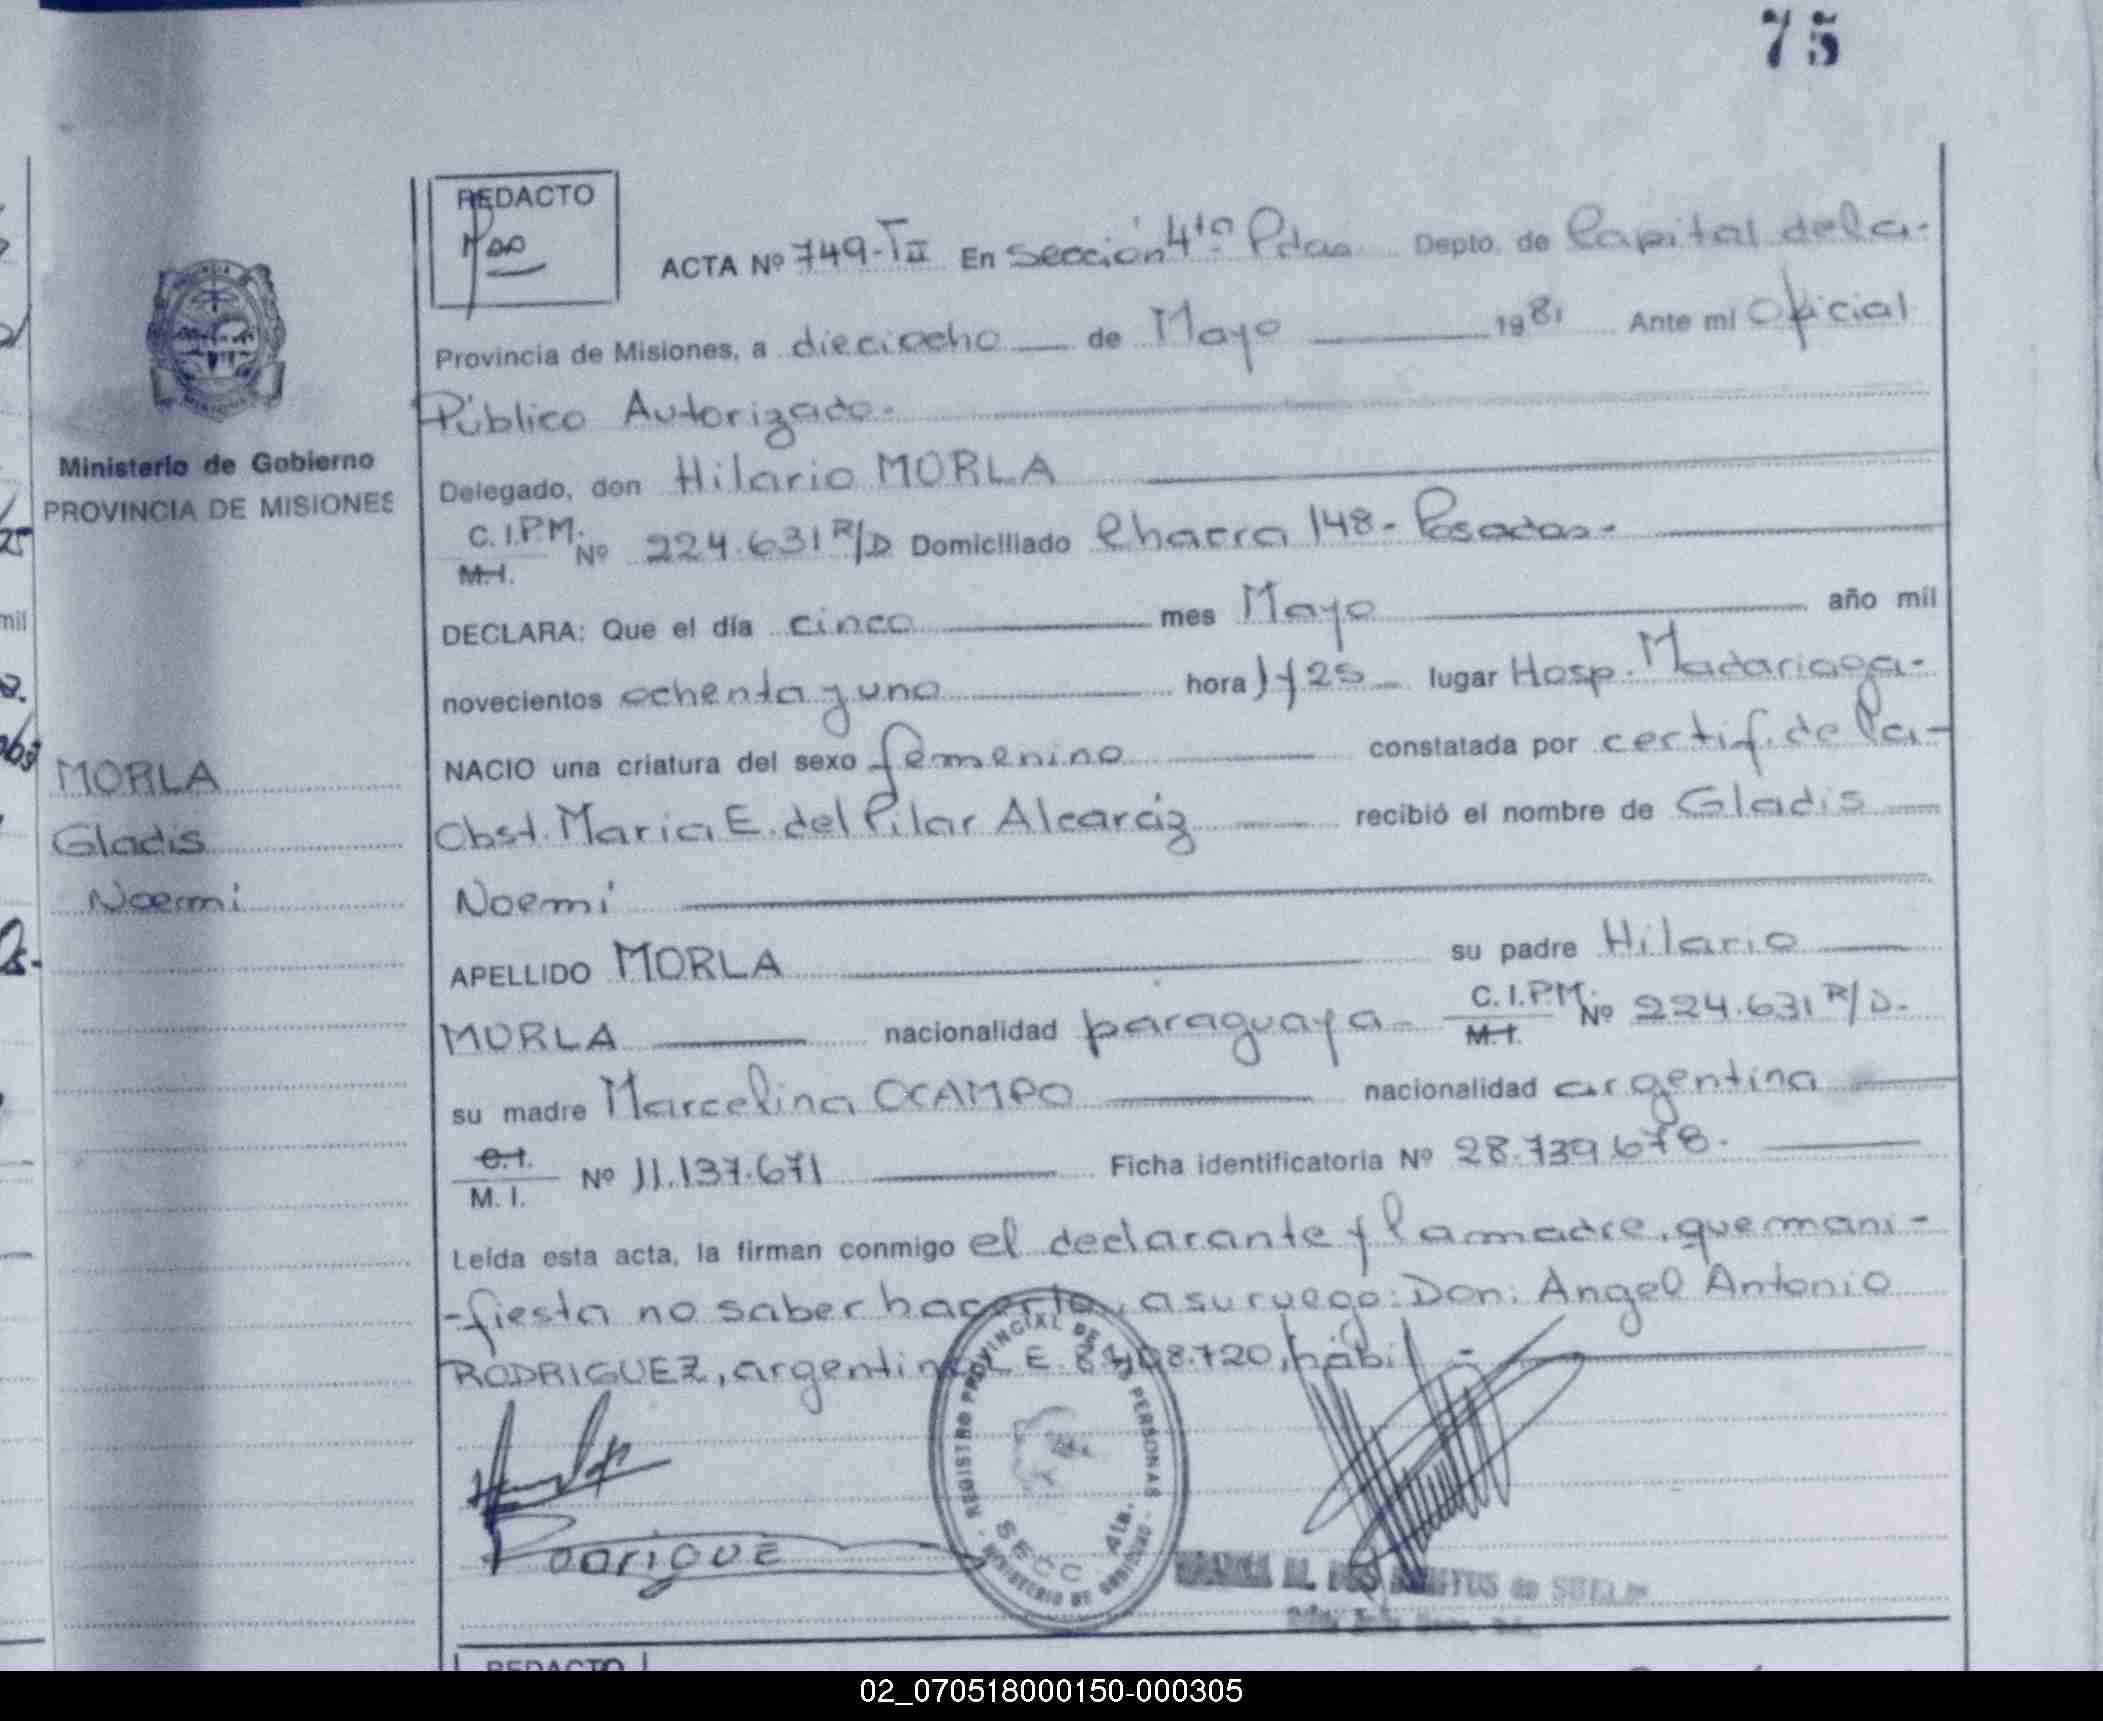 75
REDACTO
ACTA Nº 749-TII En Sección 4ta Pdas Depto. de Capital de la-
Provincia de Misiones, a dieciocho de Mayo 1981 Ante mi Oficial
Público Autorizado.
Ministerio de Gobierno
PROVINCIA DE MISIONES
Delegado, don Hilario MORLA
C.I.P.M. Nº 224.631 R/D Domiciliado Chacra 148- Posadas-
M.I.
DECLARA: Que el día cinco mes Mayo año mil
novecientos ochenta y uno hora lugar Hosp. Madariaga-
NACIO una criatura del sexo femenino constatada por certif. de la-
Obst. Maria E. del Pilar Alcaráz recibió el nombre de Gladis
Noemi
MORLA
Gladis
Noemi
APELLIDO MORLA su padre Hilario
MORLA nacionalidad paraguaya- C.I.P.M. Nº 224.631 R/D.
M.I.
su madre Marcelina OCAMPO nacionalidad argentina
C.I.
M. I. Nº 11.137.671 Ficha identificatoria Nº 28.739.678.
Leída esta acta, la firman conmigo el declarante y la madre, que mani-
-fiesta no saber hacerlo, a su ruego: Don: Angel Antonio
RODRIGUEZ, argentino L E 8.408.720, hábil.-
REGISTRO PROVINCIAL DE LAS PERSONAS
SECC 4ta.
MINISTERIO DE GOBIERNO
REDACTO
02_070518000150-000305